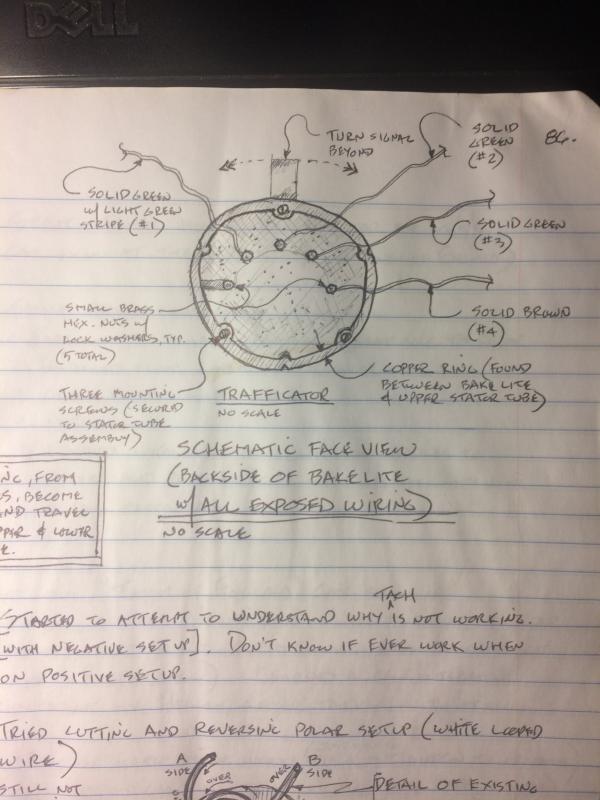 DELL
86.
TURN SIGNAL
BEYOND
SOLID
GREEN
(#2)
SOLID GREEN
W/ LIGHT GREEN
STRIPE (#1)
SOLID GREEN
(#3)
SOLID BROWN
(#4)
SMALL BRASS
HEX. NUTS W/
LOCK WASHERS, TYP.
(5 TOTAL)
THREE MOUNTING
SCREWS (SECURED
TO STATOR TUBE
ASSEMBLY)
TRAFFICATOR
NO SCALE
COPPER RING (FOUND
BETWEEN BAKELITE
& UPPER STATOR TUBE)
SCHEMATIC FACE VIEW
(BACKSIDE OF BAKELITE
W/ ALL EXPOSED WIRING)
NO SCALE
, FROM
, BECOME
AND TRAVEL
& LOWER
STARTED TO ATTEMPT TO UNDERSTAND WHY TACH IS NOT WORKING.
[WITH NEGATIVE SETUP]. DON'T KNOW IF EVER WORK WHEN
ON POSITIVE SETUP.
TRIED CUTTING AND REVERSING POLAR SETUP (WHITE LOOPED
WIRE)
STILL NOT
A
SIDE
OVER
OVER
B
SIDE
DETAIL OF EXISTING